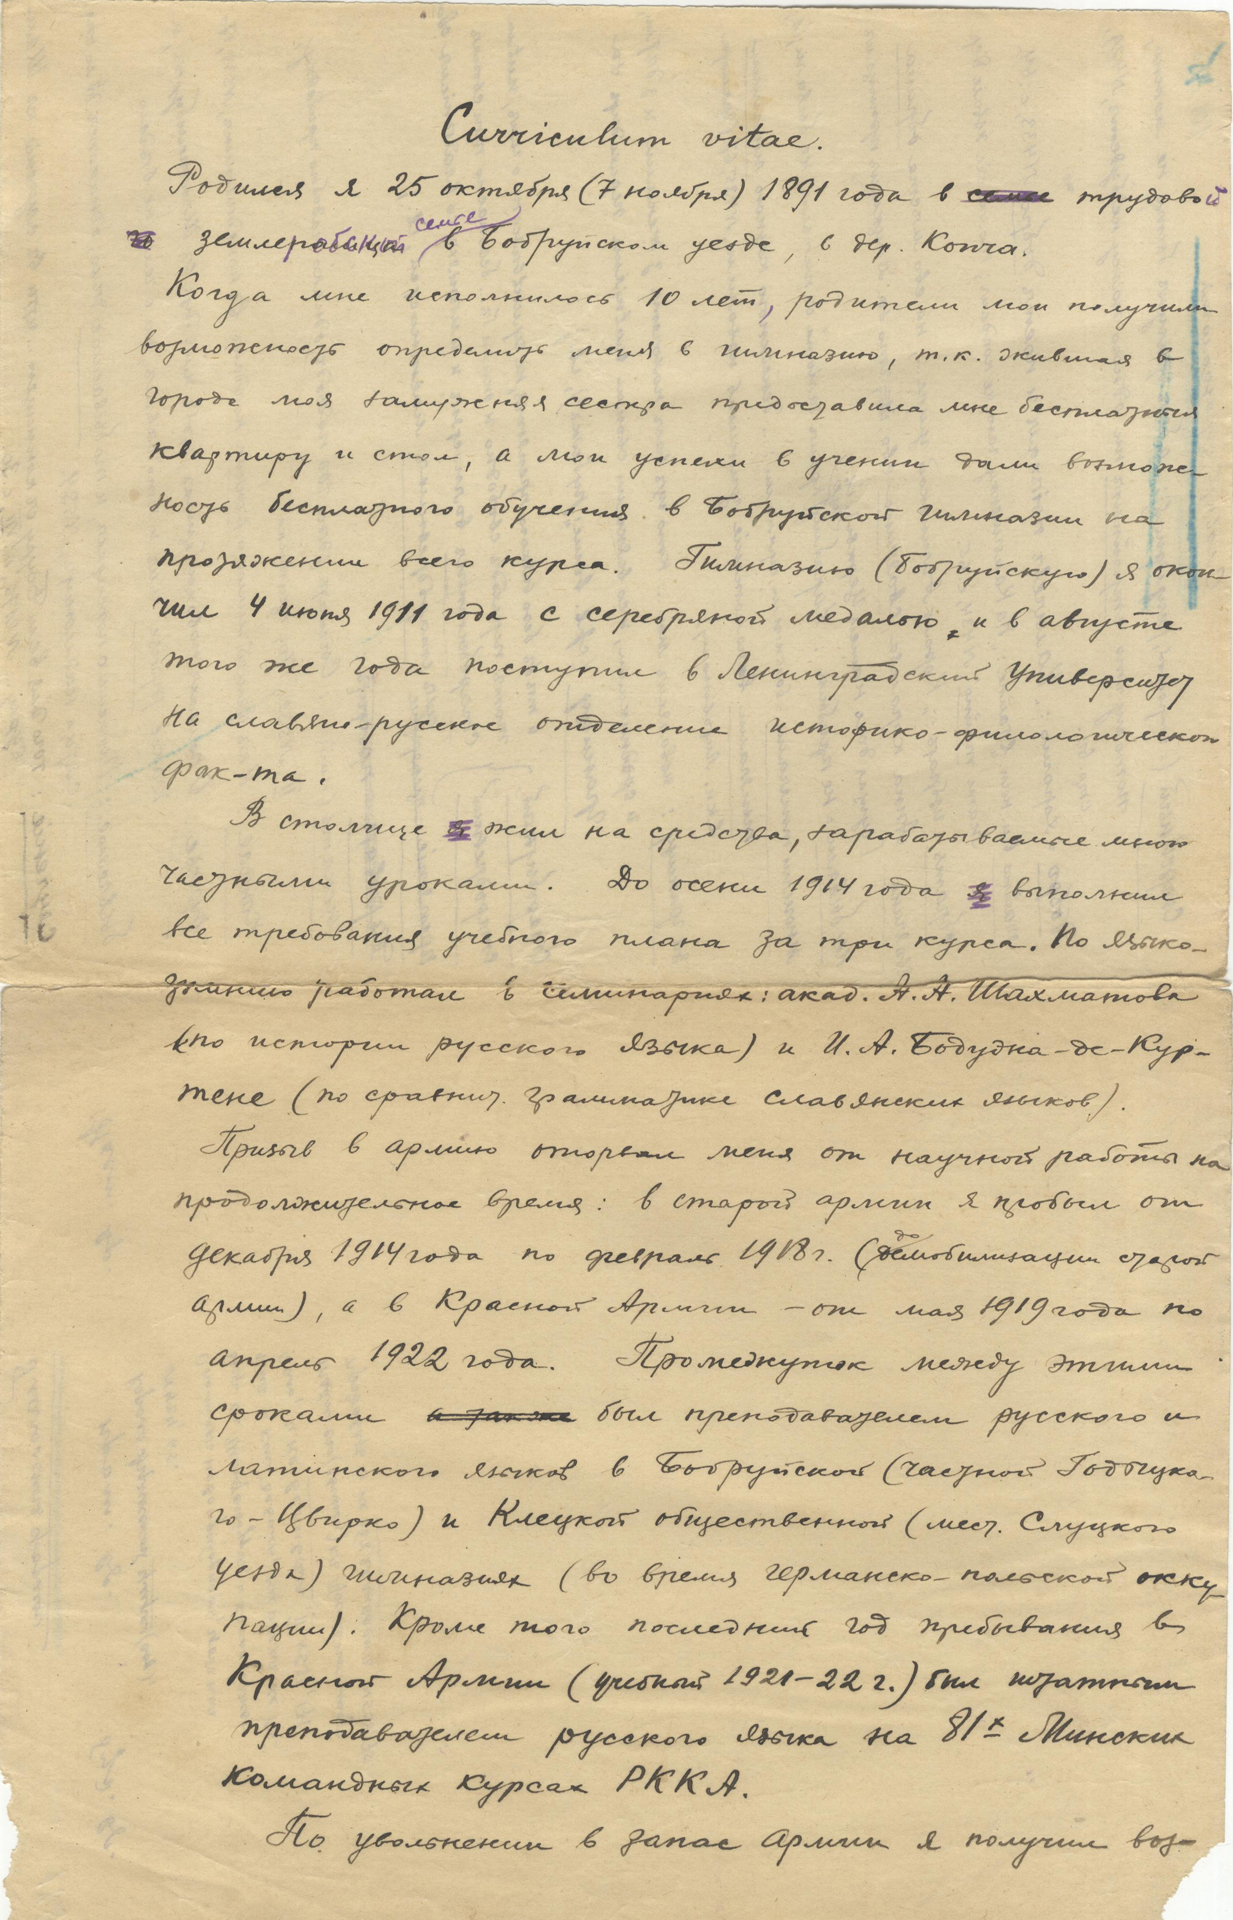 Curriculum vitae.
Родился я 25 октября (7 ноября) 1891 года в семье трудовой
землеробческой семье в Бобруйском уезде, в дер. Конча.
Когда мне исполнилось 10 лет, родители мои получили
возможность определить меня в гимназию, т.к. жившая в
городе моя замужняя сестра предоставила мне бесплатные
квартиру и стол, а мои успехи в учении дали возмож-
ность бесплатного обучения в Бобруйской гимназии на
протяжении всего курса. Гимназию (Бобруйскую) я окон-
чил 4 июня 1911 года с серебряной медалью, и в августе
того же года поступил в Ленинградский Университет
на славяно-русское отделение историко-филологической
фак-та.
В столице я жил на средства, зарабатываемые мною
частными уроками. До осени 1914 года я выполнил
все требования учебного плана за три курса. По языко-
знанию работал в семинариях: акад. А. А. Шахматова
(по истории русского языка) и И. А. Бодуэна-де-Кур-
тене (по сравнит. грамматике славянских языков).
Призыв в армию оторвал меня от научной работы на
продолжительное время: в старой армии я пробыл от
декабря 1914 года по февраль 1918 г. (до демобилизации старой
армии), а в Красной Армии – от мая 1919 года по
апрель 1922 года. Промежуток между этими
сроками а также был преподавателем русского и
латинского языков в Бобруйской (частной Годыцка-
го-Цвирко) и Клецкой общественной (мест. Слуцкого
уезда) гимназиях (во время германско-польской окку
пации). Кроме того последний год пребывания в
Красной Армии (учебный 1921–22 г.) был штатным
преподавателем русского языка на 81х Минских
командных курсах РККА.
По увольнении в запас армии я получил воз-